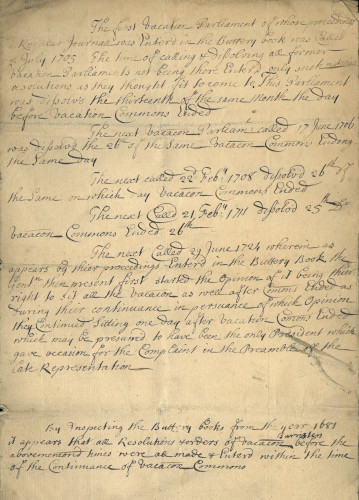 The first Vacation Parliament of whose proceedings
a Regular Journal was Enterd in the Buttery book was Called
July 1705 The time of calling & dissolving all former
vacation Parliaments not being there Enterd only such
resolutions as they thought fit to come to This Parliament
was dissolv'd the thirteenth of the same Month the day
before Vacation Commons Ended
The next Vacacon Parliamt called 17 June 1706
was dissolvd the 26 of the same Vacacon Commons Ending
the same day
The next called 22d Febry 1708 dissolvd 26th of
the same on which day Vacacon Commons Ended
The next Called 21 Febry 1711 dissolvd 25th
Vacacon Commons Ended 26th
The next Called 23 June 1724 wherein as
appears by their proceedings Enterd in the Buttery Book the
Gentn then present first started the Opinion of it being their
right to sit all the Vacacon as well after Comons Ended as
during their continuance in persuance of which Opinion
they Continued Sitting one day after vacation Comons Ended
which may be presumed to have been the only President which
gave occasion for the Complaint in the Preamble of the
late Representation
By Inspecting the Buttery books from the year 1681
it appears that all Resolutions & orders of vacacon Barristers before the
abovemencond times were all made & Enterd within the time
of the Continuance of Vacacon Commons